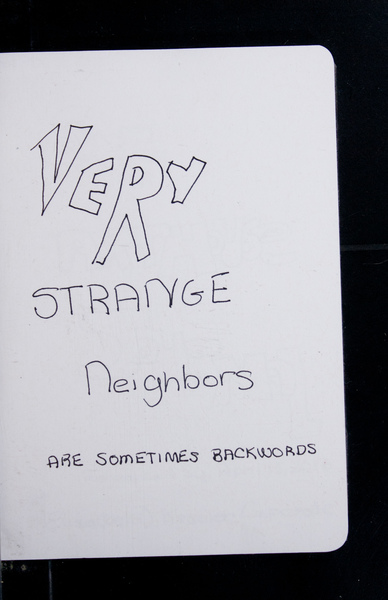 VERY
STRANGE
Neighbors
ARE SOMETIMES BACKWORDS